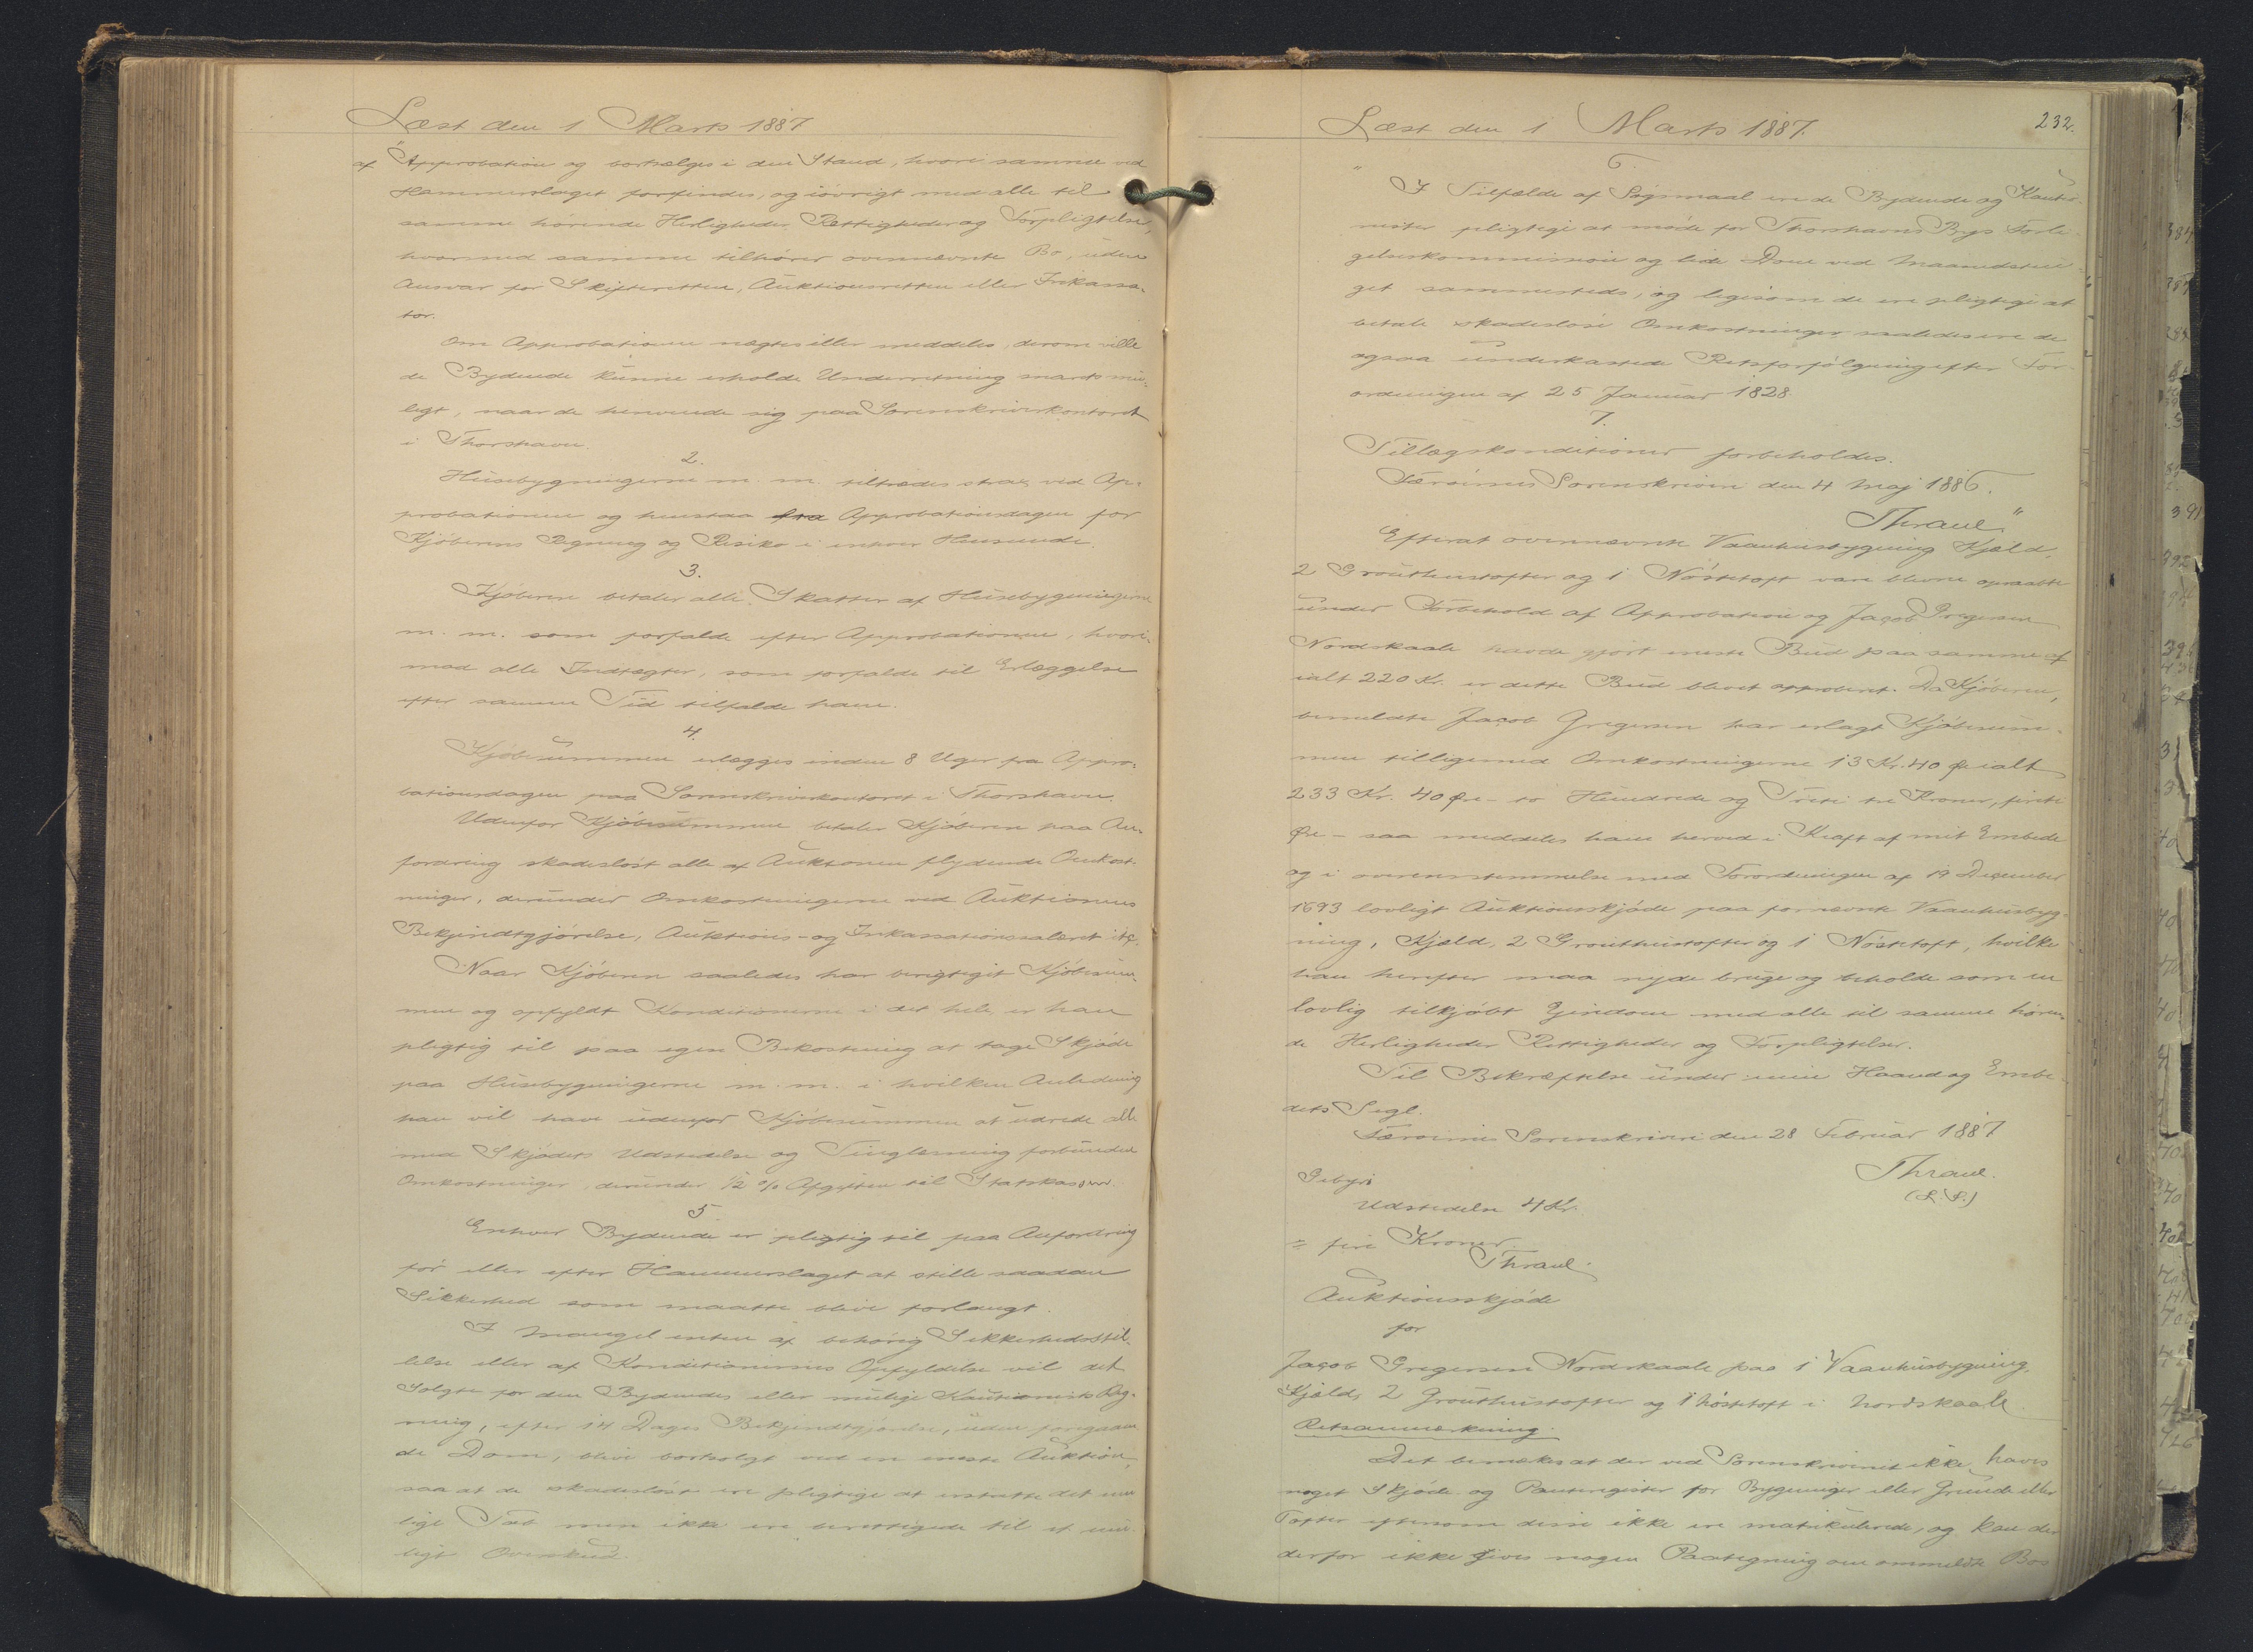 Læst den 1 Marts 1887
af Approbation og bortsælges i den Stand, hvori samme ved
Hammerslaget forfindes, og iøvrigt med alle til
samme hørende Herligheder, Rettigheder og Forpligtelser,
hvormed samme tilhører ovennævnte Bo, uden
Ansvar for Skifteretten, Auktionsretten eller Inkassa-
tor.
Om Approbationen nægtes eller meddeles, derom ville
de Bydende kunne erholde Underretning snarest mu-
ligt, naar de henvende sig paa Sorenskriverkontoret
i Thorshavn.
2.
Husebygningerne m. m. tiltrædes strax ved Ap-
probationen og henstaa fra Approbationsdagen for
Kjøberens Regning og Risiko i enhver Henseende.
3.
Kjøberen betaler alle Skatter af Husebygningerne
m. m. som forfalde efter Approbationen, hvori-
mod alle Indtægter, som forfalde til Erlæggelse
efter samme Tid tilfalde ham.
4.
Kjøbesummen erlægges inden 8 Uger fra Appro-
bationsdagen paa Sorenskriverkontoret i Thorshavn.
Udenfor Kjøbesummen betaler Kjøberen paa An-
fordring skadesløst alle af Auktionen flydende Omkost-
ninger, derunder Omkostningerne ved Auktionens
Bekjendtgjørelse, Auktions- og Inkassationssalæret itc.
Naar Kjøberen saaledes har berigtiget Kjøbesum-
men og opfyldt Konditionerne i det hele, er han
pligtig til paa egen Bekostning at tage Skjøde
paa Husebygningerne m. m. i hvilken Anledning
han vil have udenfor Kjøbesummen at udrede alle
med Skjødets Udstedelse og Tinglæsning forbundne
Omkostninger, derunder 1/2 % Afgiften til Statskassen.
5
Enhver Bydende er pligtig til paa Anfordring
før eller efter Hammerslaget at stille saadan
Sikkerhed som maatte blive forlangt.
I Mangel enten af behørig Sikkerhedsstil-
lelse eller af Konditionernes Opfyldelse vil det
Solgte for den Bydendes eller mulige Kautionists Reg-
ning, efter 14 Dages Bekjendtgjørelse, uden foregaaen
de Dom, blive bortsolgt ved en eneste Auktion,
saa at de skadesløst ere pligtige at erstatte det mu
lige Tab men ikke ere berettigede til et mu
ligt Overskud.
Læst den 1 Marts 1887.
232.
" 6.
I Tilfælde af Søgsmaal ere de Bydende og Kautio-
nister pligtige at møde for Thorshavns Bys Forli-
gelseskommission og lide Dom ved Maanedstin-
get sammesteds, og ligesom de ere pligtige at
betale skadesløse Omkostninger saaledes ere de
ogsaa underkastede Retsforfølgning efter For-
ordningen af 25 Januar 1828.
7.
Tillægskonditioner forbeholdes.
Færøernes Sorenskriveri den 4 Maj 1886.
Thraue."
Efterat ovennævnte Vaanhusbygning Kjæld,
2 Grouthustofter og 1 Nøstetoft vare blevne opraabte
under Forbehold af Approbation og Jacob Gregersen
Nordskaale havde gjort eneste Bud paa samme af
ialt 220 Kr. er dette Bud blevet approberet. Da Kjøberen,
bemeldte Jacob Gregersen har erlagt Kjøbesum-
men tilligemed Omkostningerne 13 Kr. 40 Øre ialt
233 Kr. 40 Øre - to Hundrede og Treti tre Kroner, fireti
Øre - saa meddeles ham herved i Kraft af mit Embede
og i overensstemmelse med Forordningen af 19 December
1693 lovligt Auktionsskjøde paa fornævnte Vaanhusbyg-
ning, Kjæld, 2 Grouthustofter og 1 Nøstetoft, hvilke
han herefter maa nyde bruge og beholde som en
lovlig tilkjøbt Ejendom med alle til samme høren-
de Herligheder Rettigheder og Forpligtelser.
Til Bekræftelse under min Haand og Embe-
dets Segl.
Færøernes Sorenskriveri den 28 Februar 1887
Thraue.
(L. S.)
Gebyr
Udstedelse 4 Kr.
= fire Kroner
Thraue.
Auktionsskjøde
for
Jacob Gregersen Nordskaale paa 1 Vaanhusbygning,
Kjæld, 2 Grouthustofter og 1 Nøstetoft i Nordskaale.
Retsanmærkning.
Det bemærkes at der ved Sorenskriveriet ikke haves
noget Skjøde og Panteregister for Bygninger eller Grunde eller
Tofter eftersom disse ikke ere matrikulerede, og kan der
derfor ikke gives nogen Paategning om ommeldte Bos